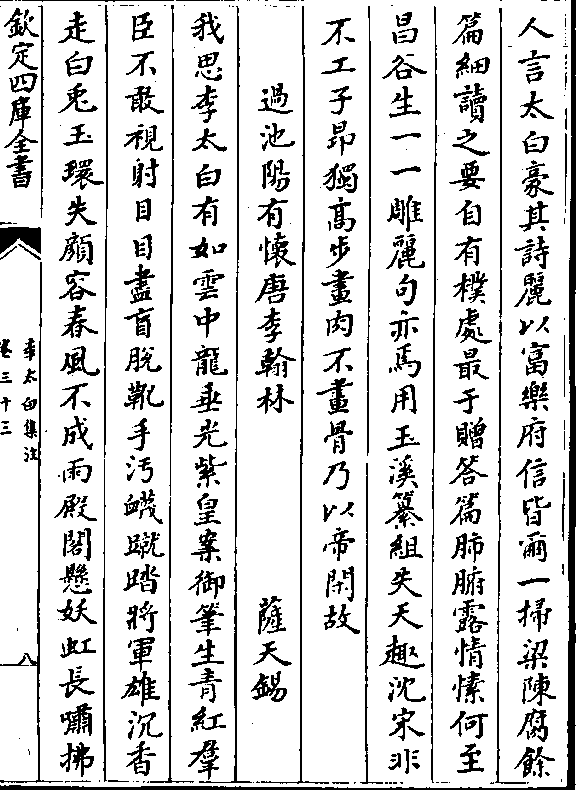 人言太白豪其詩麗以富樂府信皆爾一掃梁陳腐餘
篇細讀之要自有樸處最于贈答篇肺腑露情愫何至
昌谷生一一雕麗句亦焉用玉溪纂組失天趣沈宋非
不工子昂獨高步畫肉不畫骨乃以帝閑故
過池陽有懷唐李翰林　薩天錫
我思李太白有如雲中龍垂光紫皇案御筆生青紅羣
臣不敢視射目目盡盲脫靴手汚衊蹴踏將軍雄沉香
走白兎玉環失顔容春風不成雨殿閣懸妖虹長嘯拂
欽定四庫全書
李太白集注
卷三十三
八